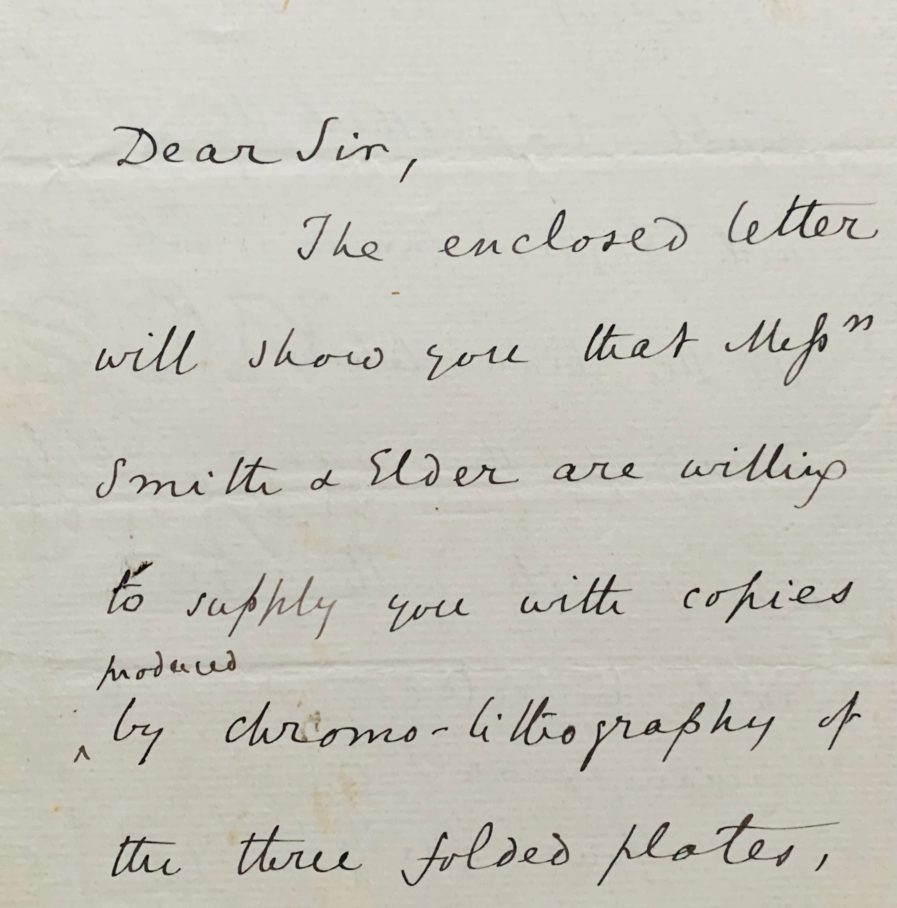 Dear Sir,
The enclosed letter
will show you that Messrs
Smith & Elder are willing
to supply you with copies
produced
^ by chromo-lithography of
the three folded plates,